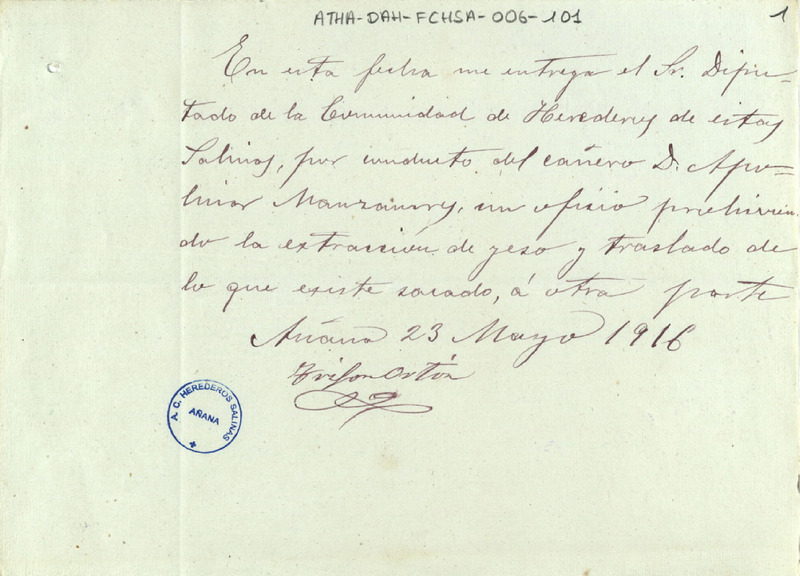 ATHA-DAH-FCHSA-006-101
1
En esta fecha me entrega el Sr. Dipu-
tado de la Comunidad de Herederos de estas
Salinas, por conducto del cañero D. Apo-
linar Manzanos, un oficio prohivien
do la extracción de yeso y traslado de
lo que existe sacado, á otra parte
Añana 23 Mayo 1916
Trifon Ortún
A. C. HEREDEROS SALINAS
AÑANA